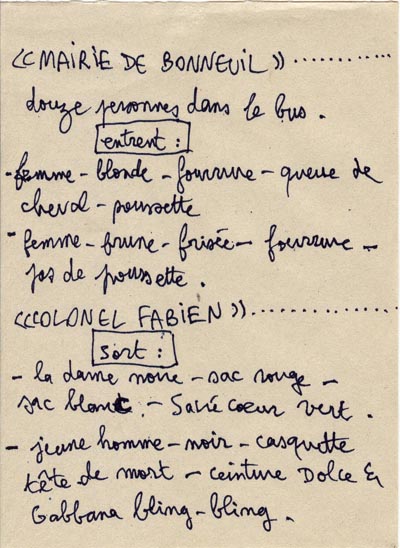 «MAIRIE DE BONNEUIL»..............
douze personnes dans le bus.
entrent :
-femme - blonde - fourrure - queue de
cheval - poussette
-femme - brune - frisée - fourrure -
pas de poussette.
«COLONEL FABIEN»..................
sort :
- la dame noire - sac rouge -
sac blanc. - Sacré coeur vert.
- jeune homme - noir - casquette
tête de mort - ceinture DOLCE &
Gabbana bling-bling.